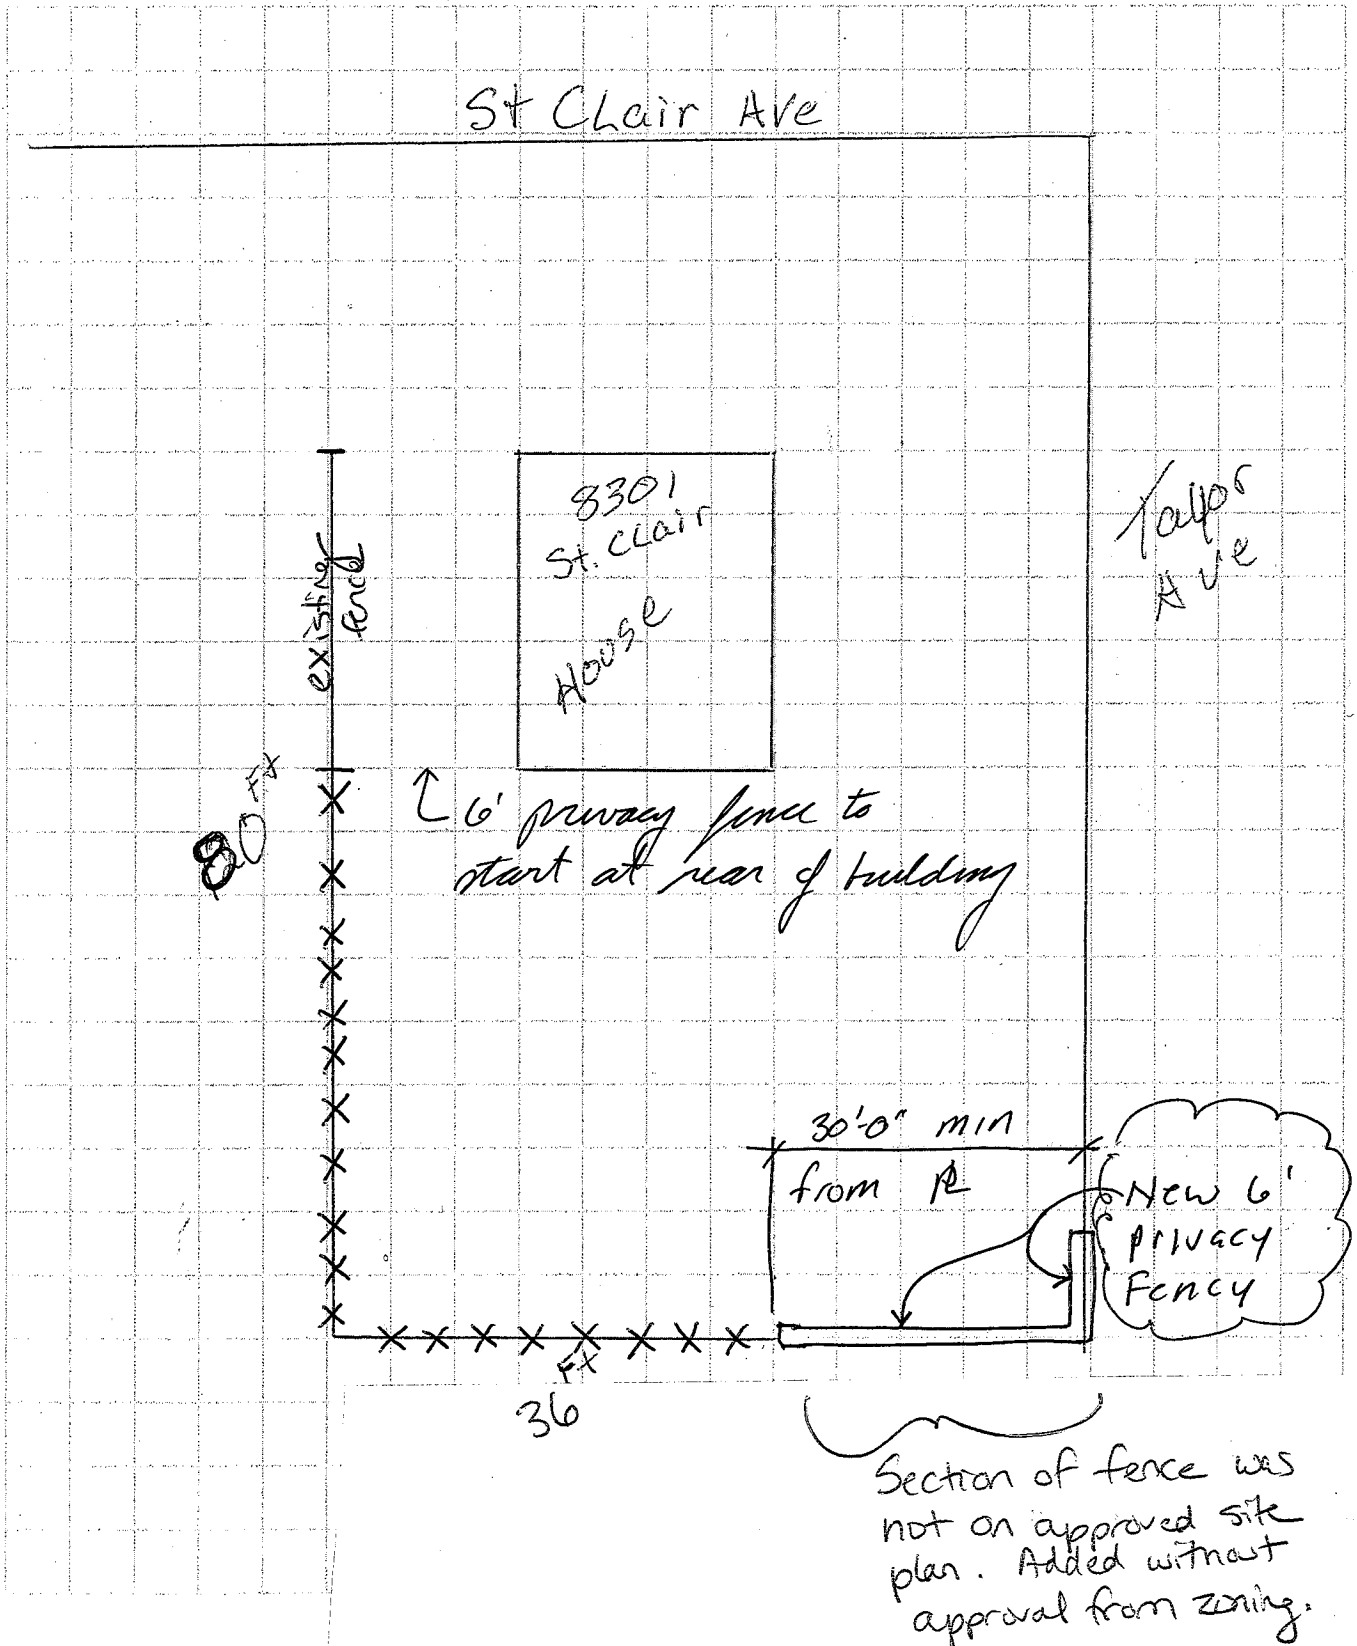 St Clair Ave
8301
St. Clair
House
Taylor
Ave
existing
fence
80 FT
6' privacy fence to
start at rear of building
30'-0" min
from PL
New 6'
privacy
Fency
FT
36
Section of fence was
not on approved site
plan. Added without
approval from zoning.